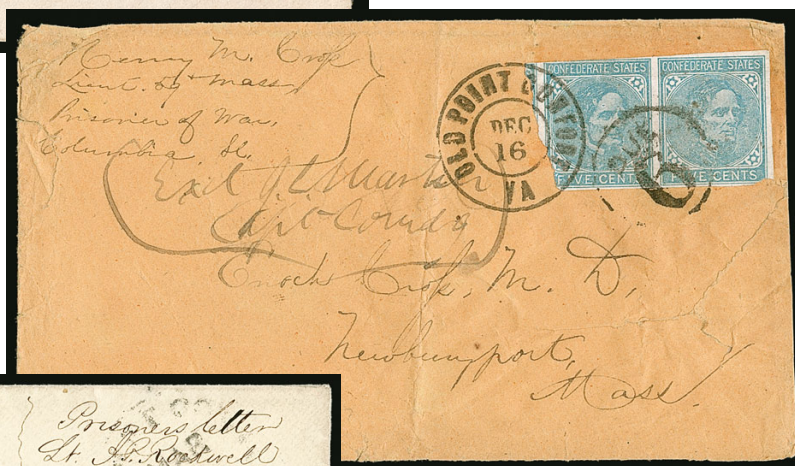 Henry M. Cross
Lieut. 59th Mass
Prisoner of War,
Columbia
OLD POINT COMFORT
DEC
16
VA
CONFEDERATE STATES
FIVE CENTS
CONFEDERATE STATES
FIVE CENTS
DUE 6
Enoch Cross, M. D,
Newburyport,
Mass
Prisoners letter
Lt. Rockwell